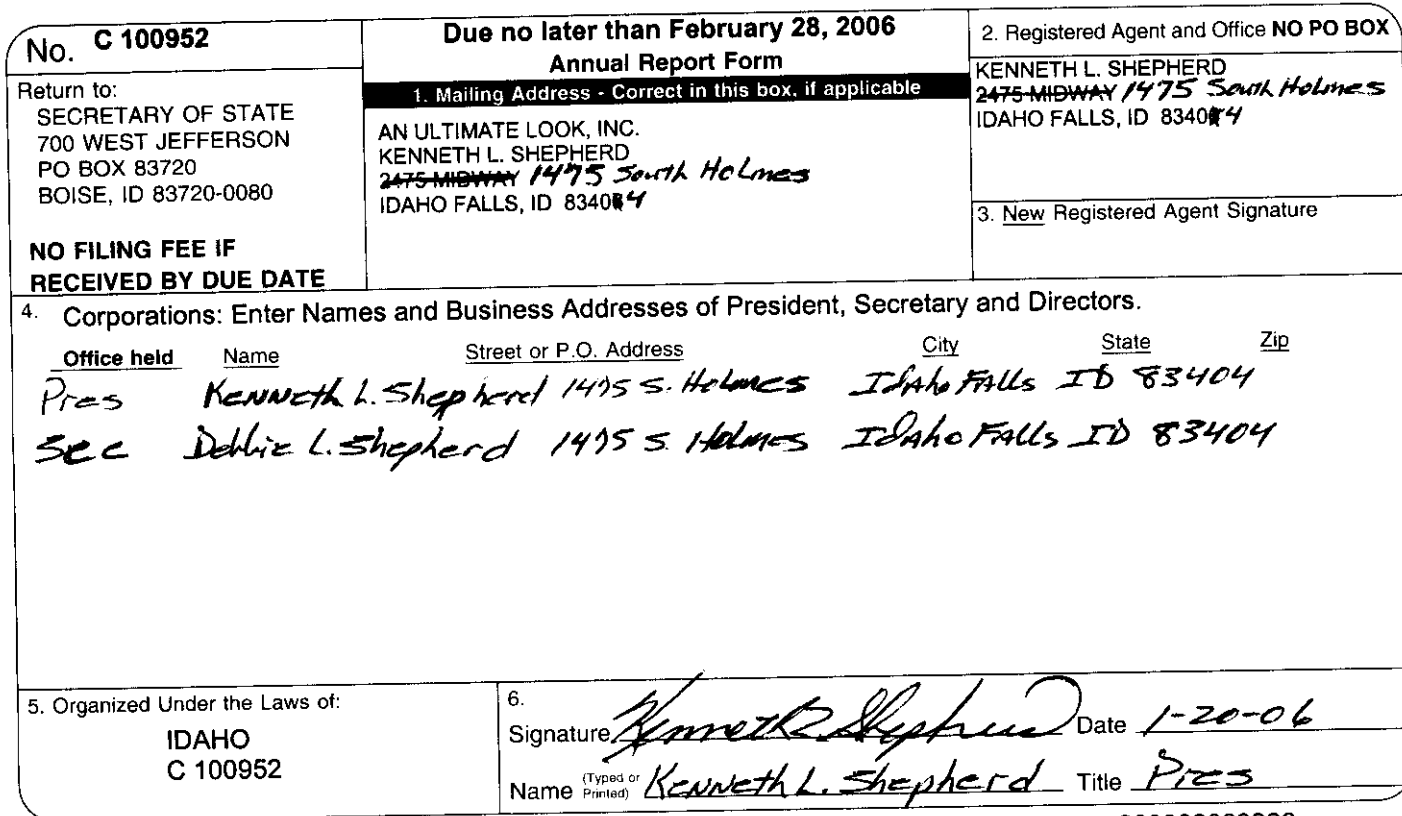 No. C 100952
Return to:
SECRETARY OF STATE
700 WEST JEFFERSON
PO BOX 83720
BOISE, ID 83720-0080
NO FILING FEE IF
RECEIVED BY DUE DATE
Due no later than February 28, 2006
Annual Report Form
1. Mailing Address - Correct in this box, if applicable
AN ULTIMATE LOOK, INC.
KENNETH L. SHEPHERD
2475 MIDWAY 1475 South Holmes
IDAHO FALLS, ID 83404
2. Registered Agent and Office NO PO BOX
KENNETH L. SHEPHERD
2475 MIDWAY 1475 South Holmes
IDAHO FALLS, ID 83404
3. New Registered Agent Signature
4. Corporations: Enter Names and Business Addresses of President, Secretary and Directors.
Office held Name Street or P.O. Address City State Zip
Pres Kenneth L. Shepherd 1475 S. Holmes Idaho Falls ID 83404
Sec Debbie L. Shepherd 1475 S. Holmes Idaho Falls ID 83404
5. Organized Under the Laws of:
IDAHO
C 100952
6.
Signature Kenneth L Shepherd Date 1-20-06
Name (Typed or Printed) Kenneth L. Shepherd Title Pres